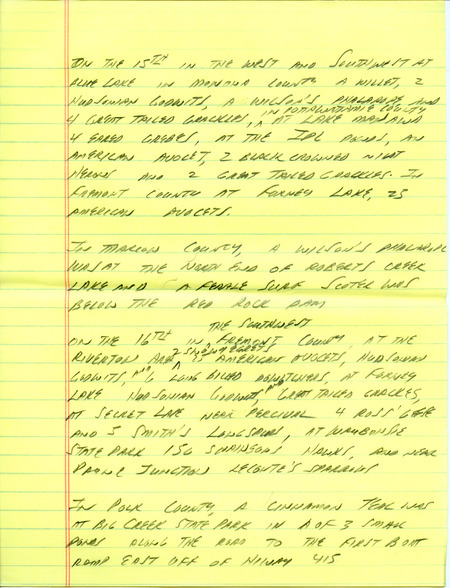 ON THE 15TH IN THE WEST AND SOUTHWEST AT
BLUE LAKE IN MONONA COUNTY A WILLET, 2
HUDSONIAN GODWITS, A WILSON'S PHALAROPE AND
IN POTTAWATTAMIE COUNTY
4 GREAT TAILED GRACKLES, AT LAKE MANAWA
4 EARED GREBES, AT THE IPL PONDS, AN
AMERICAN AVOCET, 2 BLACK CROWNED NIGHT
HERONS AND 2 GREAT TAILED GRACKLES. IN
FREMONT COUNTY AT FORNEY LAKE, 23
AMERICAN AVOCETS.
IN MARION COUNTY, A WILSON'S PHALAROPE
WAS AT THE NORTH END OF ROBERTS CREEK
LAKE AND A FEMALE SURF SCOTER WAS
BELOW THE RED ROCK DAM
THE SOUTHWEST
ON THE 16TH IN FREMONT COUNTY AT THE
2 SNOWY EGRETS
RIVERTON AREA 15 AMERICAN AVOCETS, HUDSONIAN
GODWITS, AND 6 LONG BILLED DOWITCHERS, AT FORNEY
LAKE HUDSONIAN GODWITS, AND GREAT TAILED GRACKLES,
AT SECRET LAKE NEAR PERCIVAL 4 ROSS' GEESE
AND 5 SMITH'S LONGSPURS, AT WAUBONSIE
STATE PARK 156 SWAINSONS HAWKS, AND NEAR
PAYNE JUNCTION LECONTE'S SPARROWS
IN POLK COUNTY, A CINNAMON TEAL WAS
AT BIG CREEK STATE PARK IN A OF 3 SMALL
PONDS ALONG THE ROAD TO THE FIRST BOAT
RAMP EAST OFF OF HIWAY 415